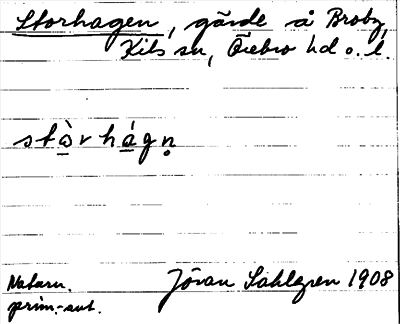 Storhagen, gärde å Broby,
Kils sn, Örebro hd o. l.
stà̱rhá̱gṇ
Naturn.
prim.-aut.
Jöran Sahlgren 1908